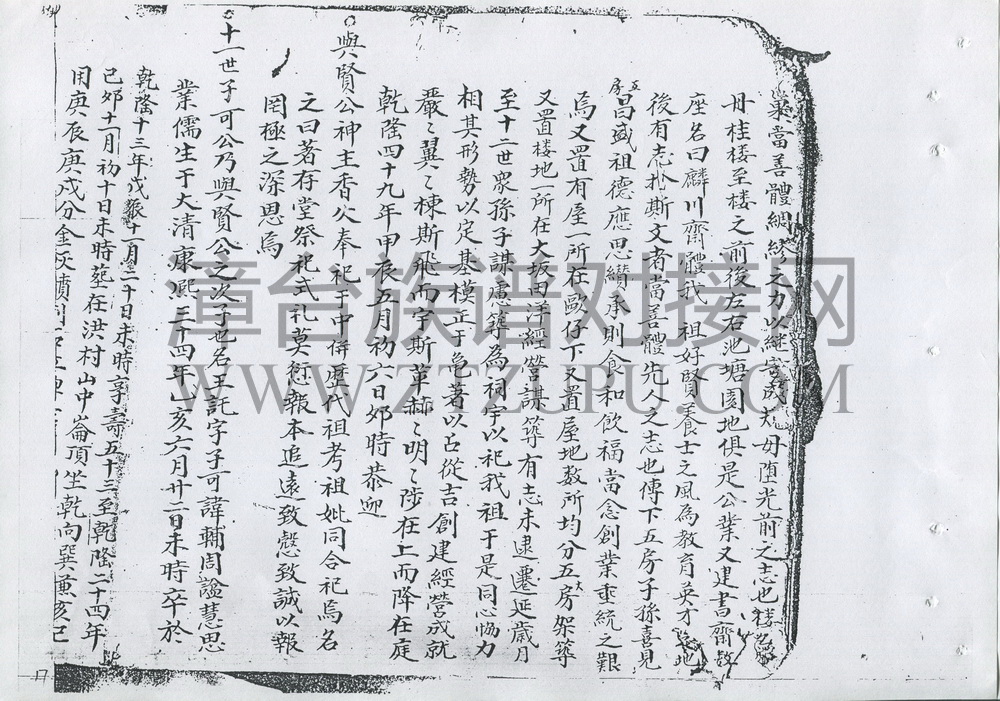 當善體綢繆之力以繼善成夫毋墮光前之志也樓名
毋桂楼至楼之前後左右池塘園地俱是公業又建書齋数
座名曰麟川齋體我祖好賢養士之風為教育英才
後有志於斯文者當善體先人之志也傳下五房子孫喜見
五房昌盛祖德應思纘承則食和飲福當念創業垂統之艱
焉又置有屋一所在歐仔下又置屋地数所均分五大房架築
又置楼地一所在大坂田洋經營謀築有志未逮遷延歲月
至十二世衆孫子謀慮築為祠宇以祀我祖于是同心協力
相其形勢以定基模正于龟著以占從吉創建經營成就
嚴〻翼〻棟斯飛而宇斯革赫〻明〻涉在上而降在庭
乾隆四十九年甲辰五月初六日卯時恭迎
與賢公神主香火奉祀于中併歷代祖考祖妣同合祀焉名
之曰著存堂祭祀式礼莫愆報本追遠致慤致誠以報
罔極之深恩焉
十一世子可公乃與賢公之次子也名王託字子可諱輔周諡慧思
業儒生于大清康熙三十四年乙亥六月廿二日未時卒於
乾隆十三年戊辰十一月二十日未時享壽五十三至乾隆二十四年
己卯十一月初十日未時葬在洪村山中崙頂坐乾向巽兼亥巳
用庚辰庚戌分金灰墳
漳台族谱对接网
WWW.ZTZUPU.COM